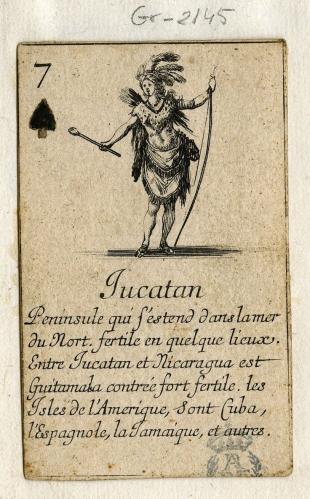 Gr-2145
7
Jucatan
Peninsule qui s'estend dans la mer
du Nort. fertile en quelque lieux.
Entre Jucatan et Nicaragua est
Guitamala contrée fort fertile. les
Isles de l'Amerique, sont Cuba,
l'Espagnole, la Jamaique, et autres.